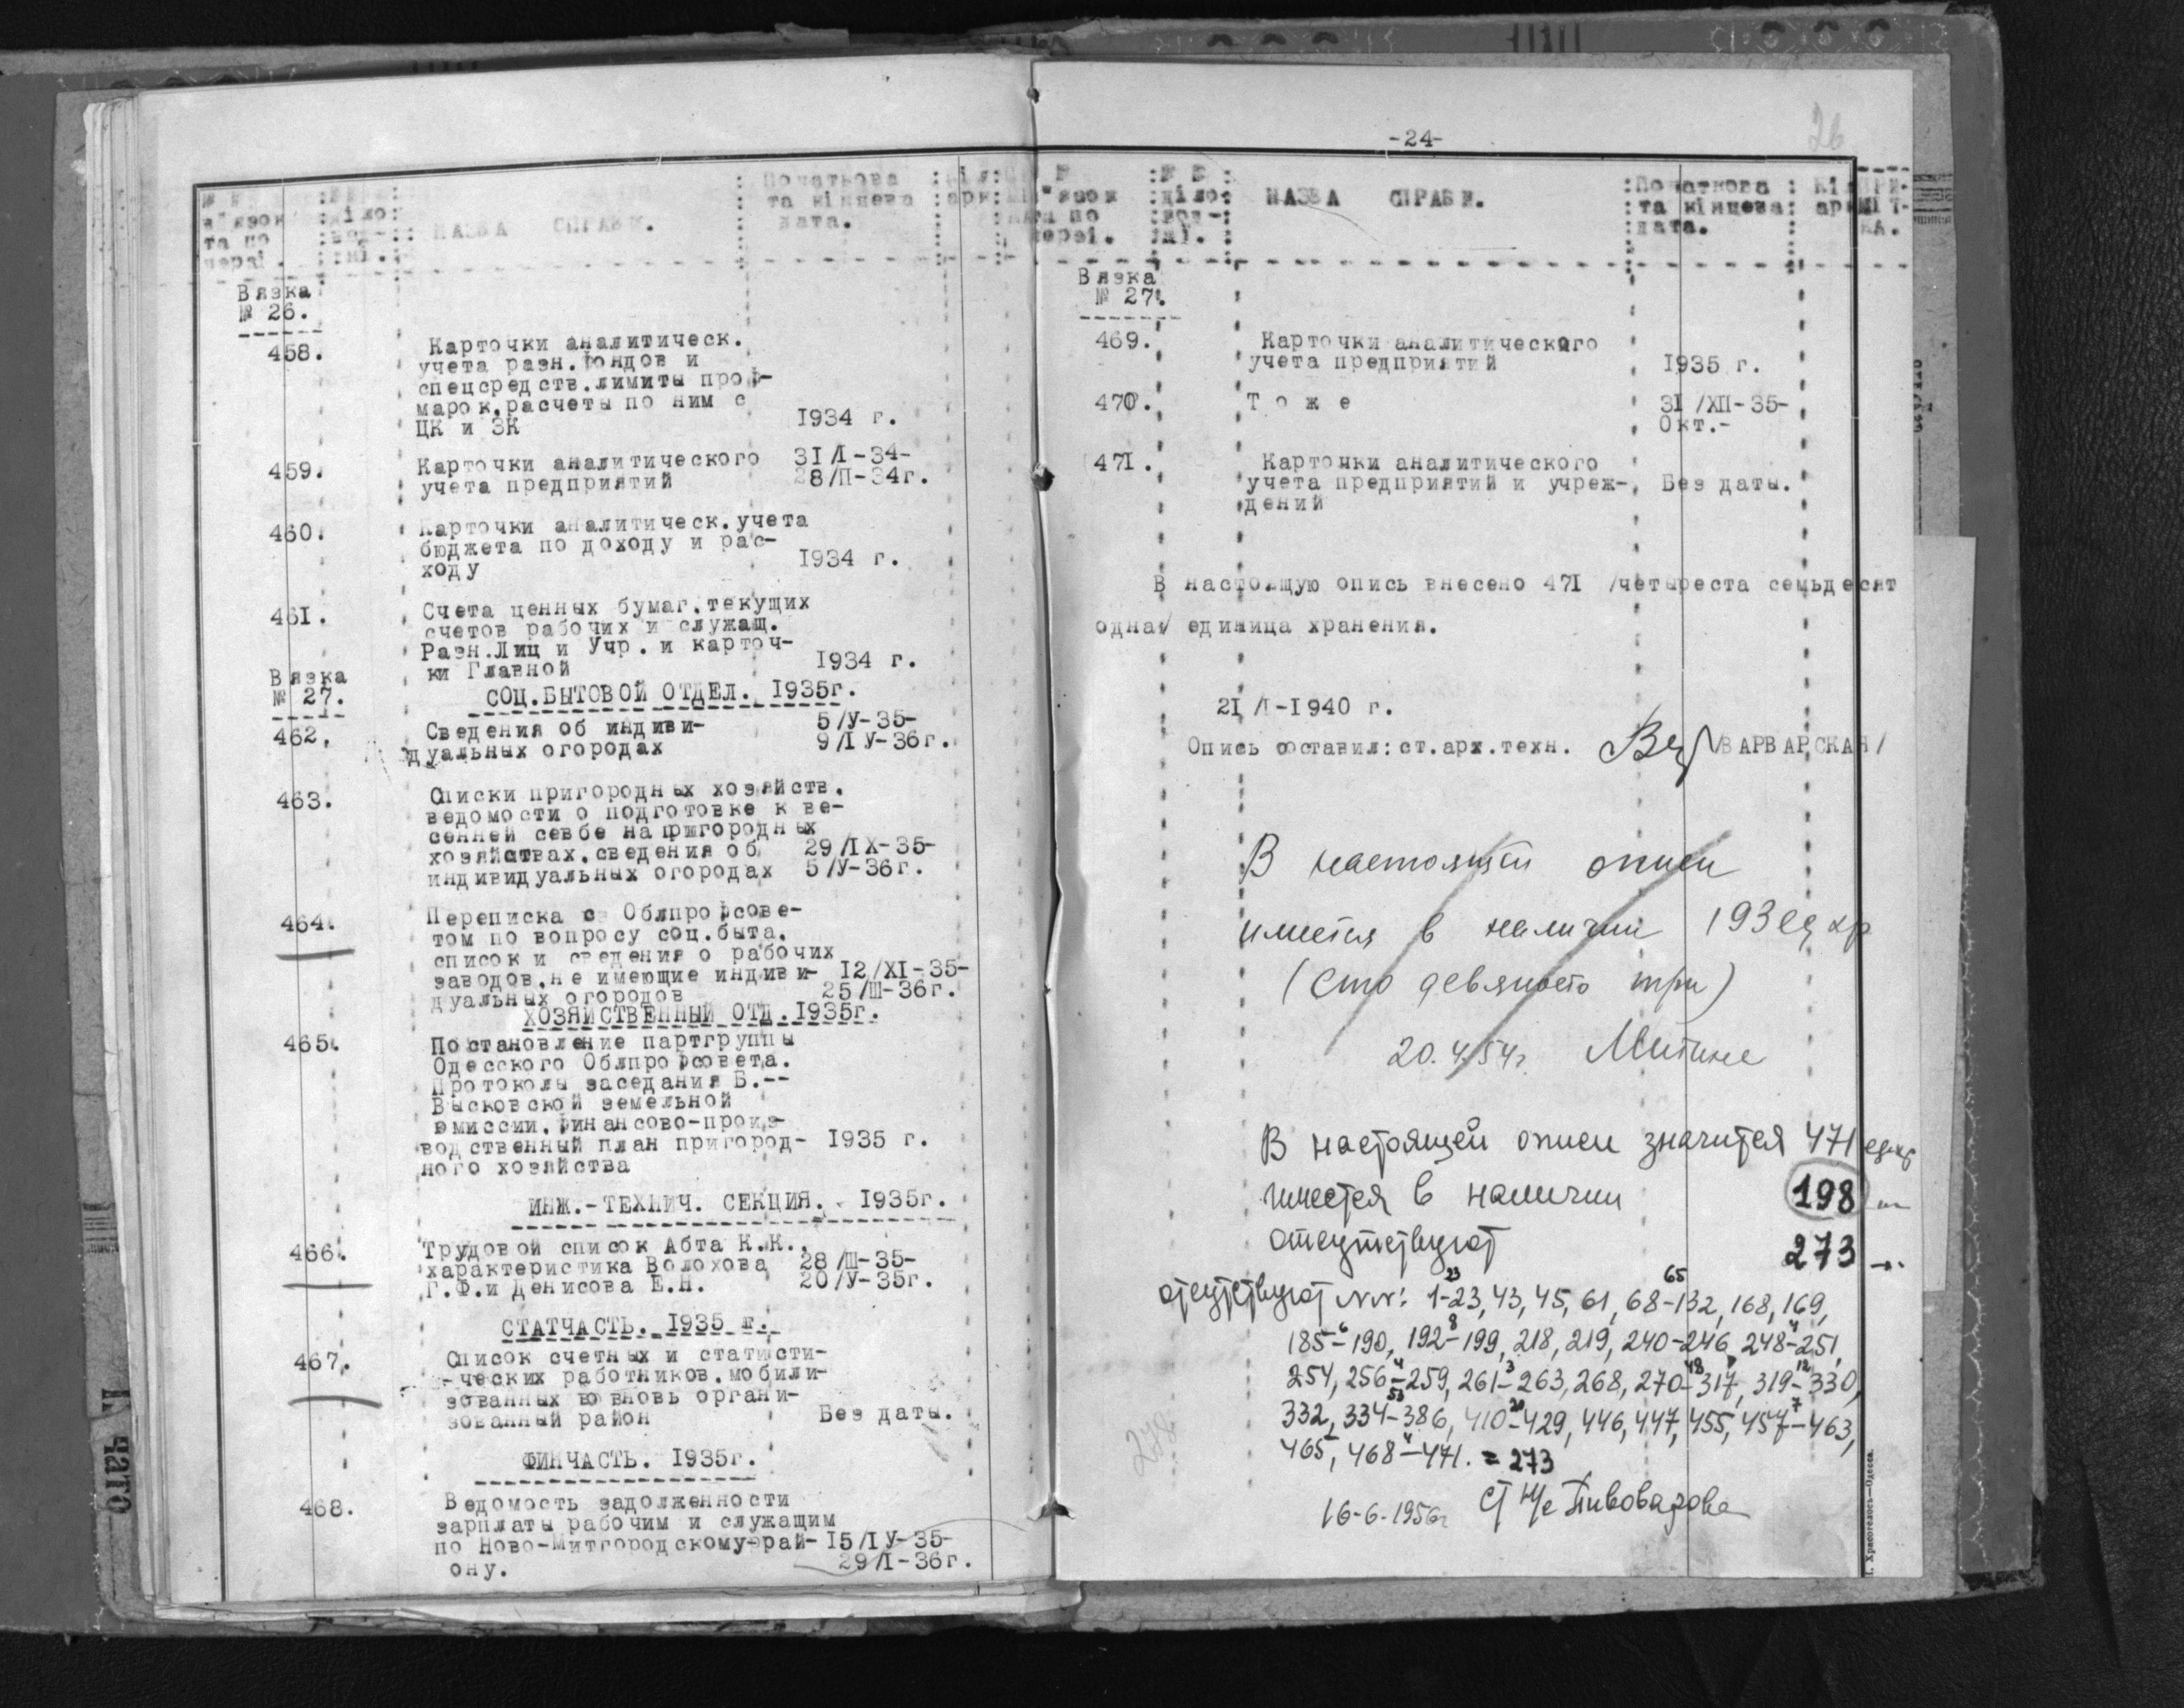 Початкова
та кінцева
дата.
НАЗВА СПРАВИ.
Вязка
№ 26.
458. Карточки аналитическ.
учета разн.фондов и
спецсредств.лимиты проф-
марок.расчеты по ним с
ЦК и ЗК 1934 г.
459. Карточки аналитического 31/I-34-
учета предприятий 28/П-34г.
460. Карточки аналитическ.учета
бюджета по доходу и рас-
ходу 1934 г.
461. Счета ценных бумаг.текущих
счетов рабочих и служащ.
Разн.Лиц и Учр. и карточ-
ки Главной 1934 г.
Вязка
№ 27.
СОЦ.БЫТОВОЙ ОТДЕЛ. 1935г.
462. Сведения об индиви- 5/У-35-
дуальных огородах 9/IУ-36г.
463. Списки пригородных хозяйств.
ведомости о подготовке к ве-
сенней севбе на пригородных
хозяйствах.сведения об 29/IХ-35-
индивидуальных огородах 5/У-36г.
464. Переписка с Облпрофсове-
том по вопросу соц.быта.
список и сведения о рабочих
заводов.не имеющие индиви- 12/ХI-35-
дуальных огородов 25/Ш-36г.
ХОЗЯЙСТВЕННЫЙ ОТД.1935г.
465. Постановление партгруппы
Одесского Облпрофсовета.
Протоколы заседания Б.--
Высковской земельной
юмиссии.финансово-произ-
водственный план пригород- 1935 г.
ного хозяйства
ИНЖ.-ТЕХНИЧ. СЕКЦИЯ. 1935г.
466. Трудовой список Абта К.К.,
характеристика Волохова 28/Ш-35-
Г.Ф.и Денисова Е.Н. 20/У-35г.
СТАТЧАСТЬ. 1935 г.
467. Список счетных и статисти-
-ческих работников.мобили-
зованных во вновь органи-
зованный район Без даты.
ФИНЧАСТЬ. 1935г.
468. Ведомость задолженности
зарплаты рабочим и служащим
по Ново-Митгородскому-рай- 15/IУ-35-
ону. 29/I-36г.
-24-
26
НАЗВА СПРАВИ.
Початкова
та кінцева
дата.
Вязка
№ 27.
469. Карточки аналитического
учета предприятий 1935 г.
470. Т о ж е 31/ХП-35-
Окт.-
471. Карточки аналитического
учета предприятий и учреж- Без даты.
дений
В настоящую опись внесено 471 /четыреста семьдесят
одна/ единица хранения.
21/I-1940 г.
Опись составил:ст.арх.техн. /ВАРВАРСКАЯ/
В настоящей описи
имеется в наличии 193 ед хр
(сто девяносто три)
20.4.54г.
В настоящей описи значится 471 ед.хр
имеется в наличии 198
отсутствуют 273
отсутствуют №№: 1-23, 43, 45, 61, 68-132, 168, 169,
185-190, 192-199, 218, 219, 240-246, 248-251,
254, 256-259, 261-263, 268, 270-317, 319-330,
332, 334-386, 410-429, 446, 447, 455, 457-463,
465, 468-471. = 273
16-6-1956г Пивоварова
278